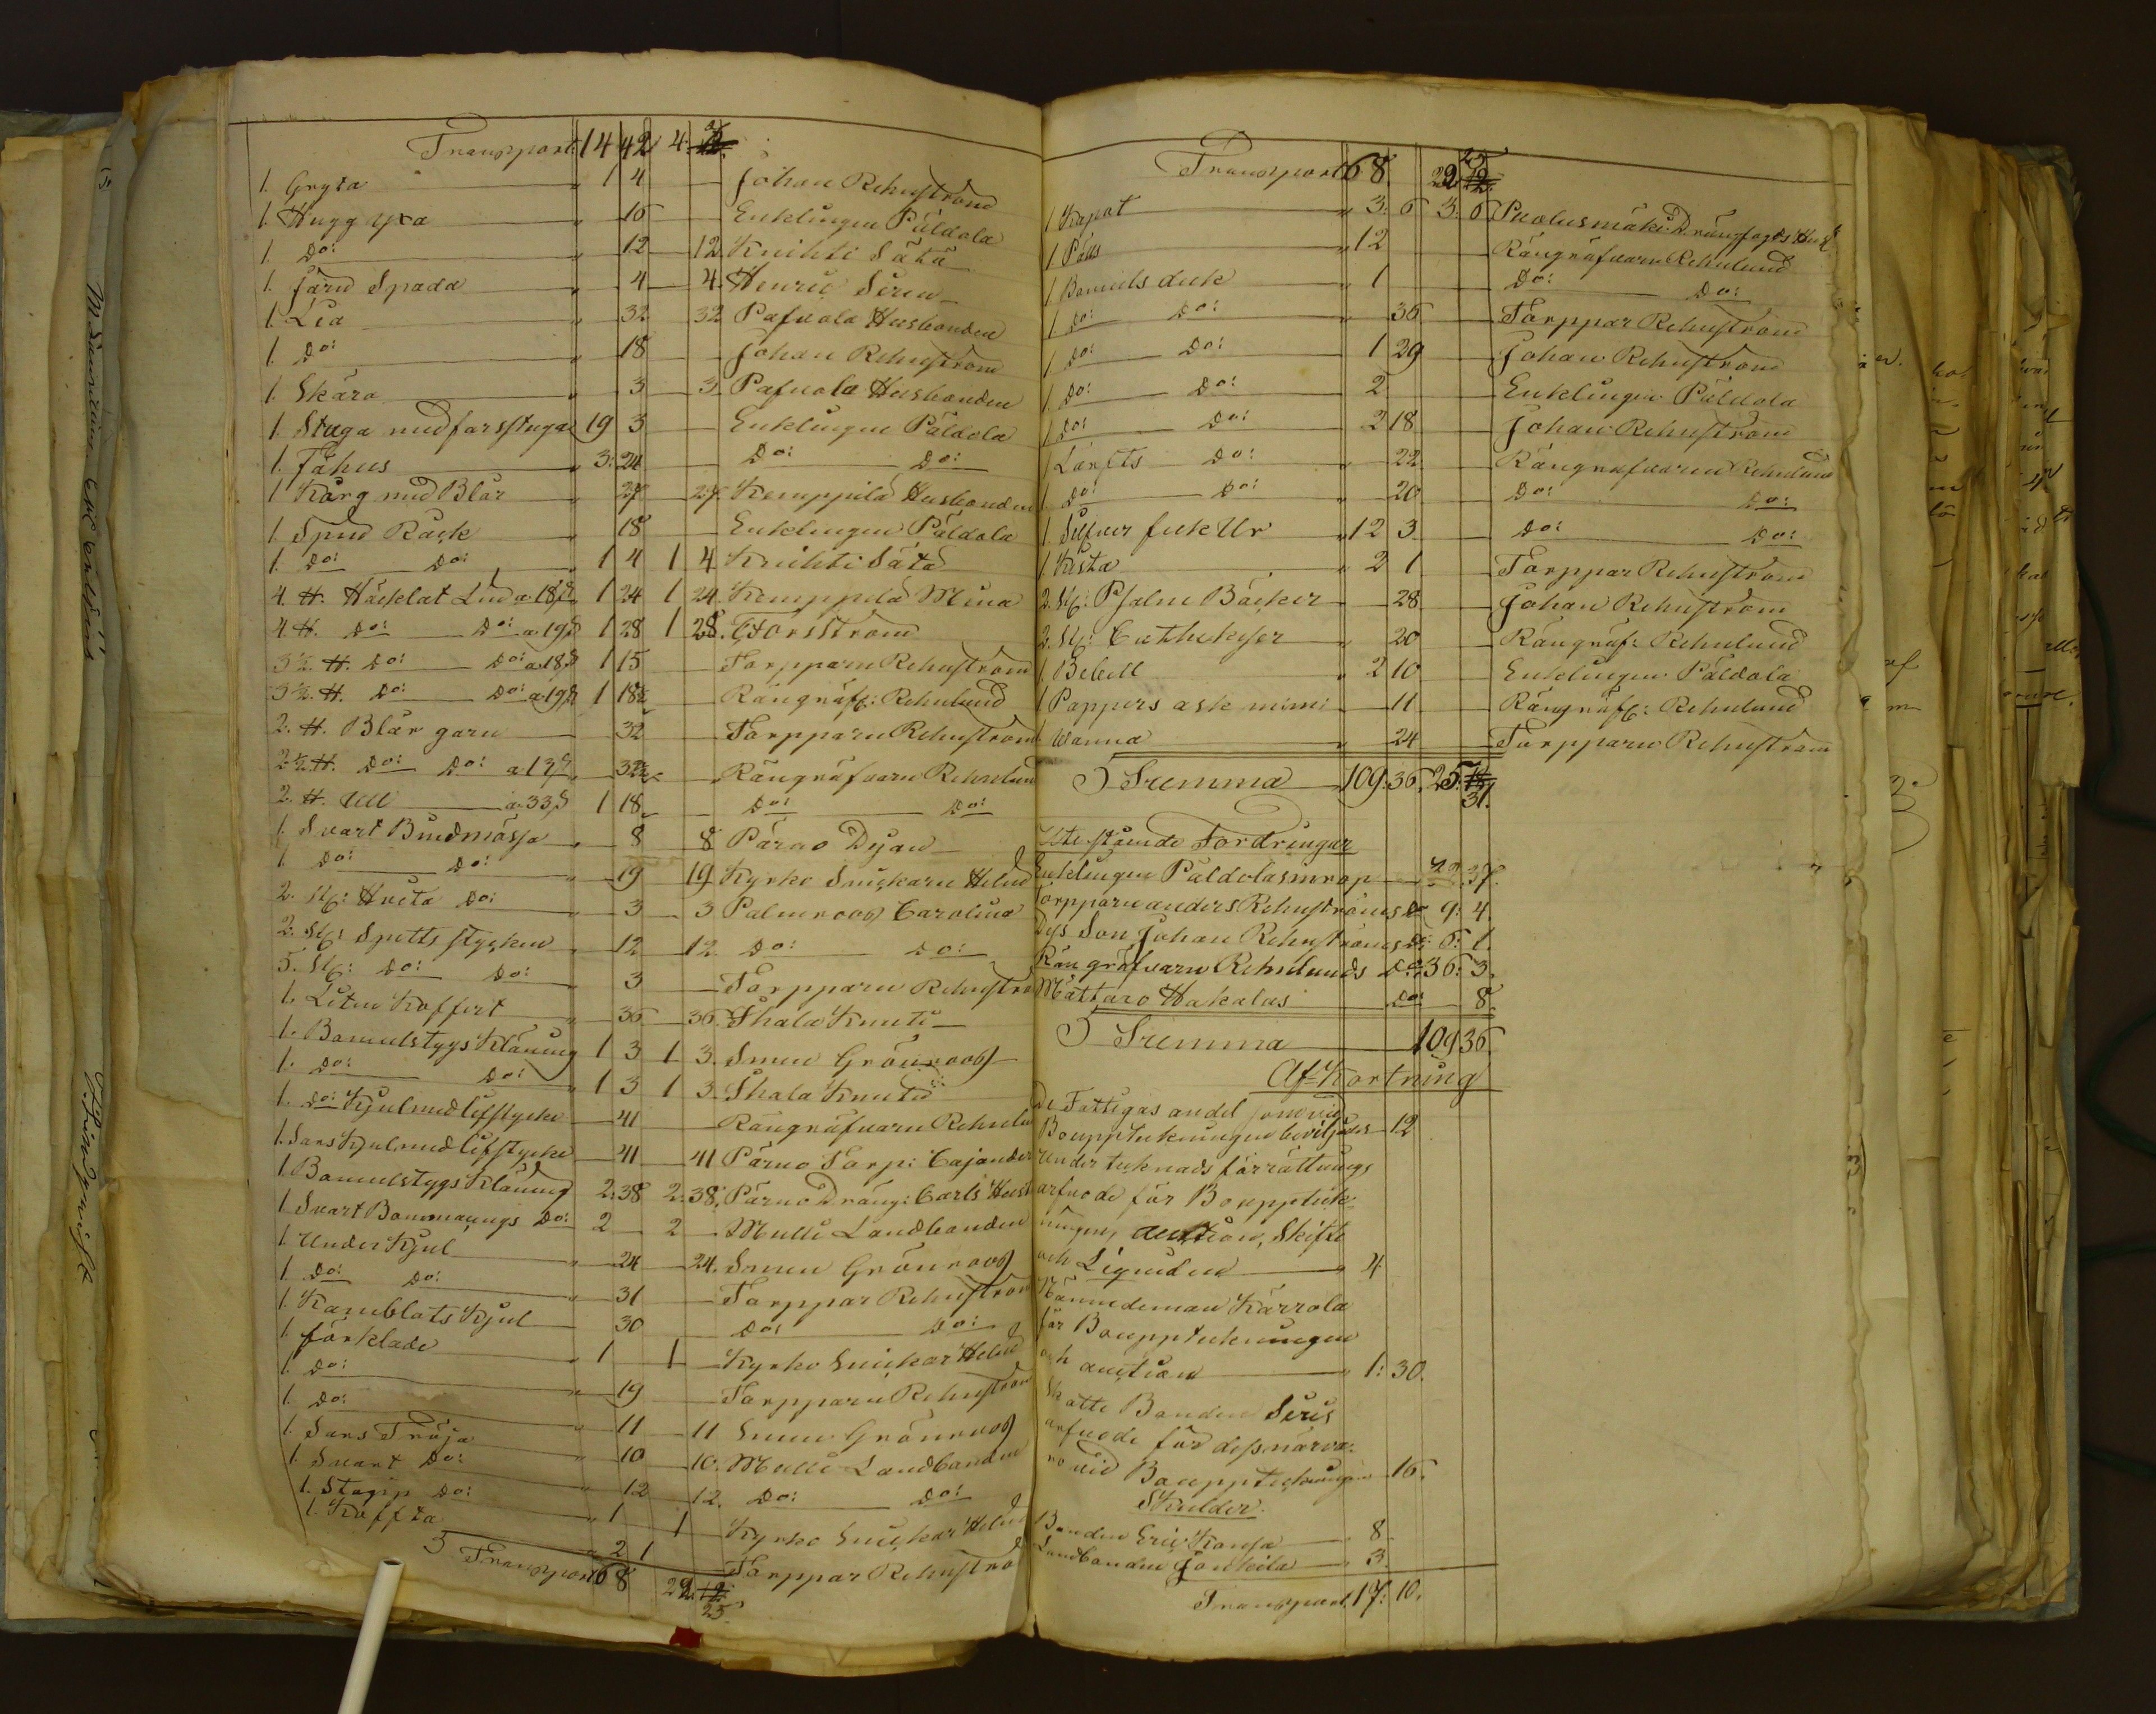 Transport 14 42 4
1. Gryta " 1 4 — Johan Rehnström
1. Hugg yxa " 16 — Enklingen Päldola
1. Do: " 12 — 12. Knihti Sätä
1. Järn Spada " 4 — 4. Henric Siren
1. Lia " 32 32 Pafvola Husbonden
1. Do: " 18 — Johan Rehnström
1. Skära " 3 — 3. Pafvola Husbonden
1. Stuga med farsstuga 19 3 — Enklingen Päldola
1. Fähus " 3: 24 — Do: Do:
1 Korg med Blår " 27 — 27. Kemppilä Husbonden
1 Spin Råck " 18 — Enklingen Päldola
1. Do: Do: " 1 4 1 4 Knihti Sätä
4. ℔. Häcklat Lin a 18 1 24 1 24. Kemppilä Mina
4 ℔. Do: Do: a 19 1 28 1 28. Forsström
3½. ℔. Do: Do: a 18 1 15 — Torpparn Rehnström
3½. ℔. Do: Do: a 19 1 18½ — Rångräfv: Rehnlund
2. ℔. Blår garn 32 — Torpparn Rehnström
2½ ℔. Do: Do: a 13 32½ — Rångräfvarn Rehnlund
2. ℔. Ull a 33 1 18. — Do: Do:
1. Svart Bindmössa " 8 8 Pärno Pijan
1 Do: Do: " 19 19 Kyrko Snickarn Helin
2. St: Hvita Do: 3 — 3 Palmroos Carolina
2. St: Spetts stycken 12 12 Do: Do:
5. St: Do: Do: 3 — Torpparn Rehnström
1. Liten Koffert " 36 — 36. Ihala Knuti
1. Bomulstygs Klänning 1 3 1 3. Smen Grönroos
1. Do: Do: " 1 3 1 3 Ihala Knuti
1. Do: Kjul med Lifstycke 41 — Rångräfvarn Rehnlun
1. Sars Kjul med Lifstycke 41 — 41 Pärno Torp: Cajander
1 Bomulstygs Klänning 2: 38 2: 38. Pärno Dräng: Carls Hust
1 Svart Bommasings Do: 2 — 2 — Mulli Landbonden
1. Under Kjul " 24 — 24. Smen Grönroos
1 Do: Do: " 31 — Torppar Rehnström
1. Kamblats Kjul 30 Do: Do:
1 förkläde " 1 1 — Kyrko Snickar Helin
1. Do: " 19 — Torpparn Rehnström
1. Do: " 11 — 11 Smen Grönroos
1. Sars Tröja 10 — 10. Mulli Landbonden
1. Svart Do: 12 12. Do: Do:
1. Do: " 1 1 — Kyrko Snickar Helin
1. Koffta " 2 1 — Torppar Rehnströ
Transport 68 22 25
Transport 68 22 25
1 Kapot " 3: 6 3: 6
1 Päls " 12 Rångräfvarn Rehnlund
1 Bomuls duk " 1 Do: Do:
1 Do: Do: " 36 Torppar Rehnström
1 Do: Do: 1 29 Johan Rehnström
1. Do: Do: 2 Enklingen Päldola
1 Do: Do: 2 18 Johan Rehnström
1 Lärfts Do: " 22 Rångräfvaren Rehnlund
1. Do: Do: " 20 Do: Do:
1. Silfver fick Ur " 12 3 Do: Do:
1. Kista " 2 1 Torppar Rehnström
2. St: Psalm Böcker 28 Johan Rehnström
2. St: Cathekeser " 20 Rångräf: Rehnlund
1. Bibell " 2 10 Enklingen Päldola
1 Pappers ask 11 Rångräfv: Rehnlund
1 Wanna " 24 Torpparn Rehnström
Summa 109: 36. 25: 31.
Utestående Fordringar
Enklingen Päldolas inrop 37.
Torpparn anders Rehnströms Do 9: 4.
Dess Son Johan Rehnströms Do: 6: 1.
Rångräfvarn Rehnlunds Do: 36: 3.
Mättaro Hakalas Do: 8.
Summa 109 36.
Af=Kortning
De Fattigas andel som vid
Boupptekningen beviljades 12
Undertecknads förrättnings
arfvode för Bouppteck=
ningen, auction, Skifte
och Liquiden " 4
Nämndeman Kärrola
för Bouppteckningen
och auction " 1: 30.
Skatte Bonden Seris
arfvode för dess närva=
ro vid Bouppteckningen 16.
Skulder.
Bonden Eric Kansa 8
Landbonden Jonkila 3.
Transport 17: 10.